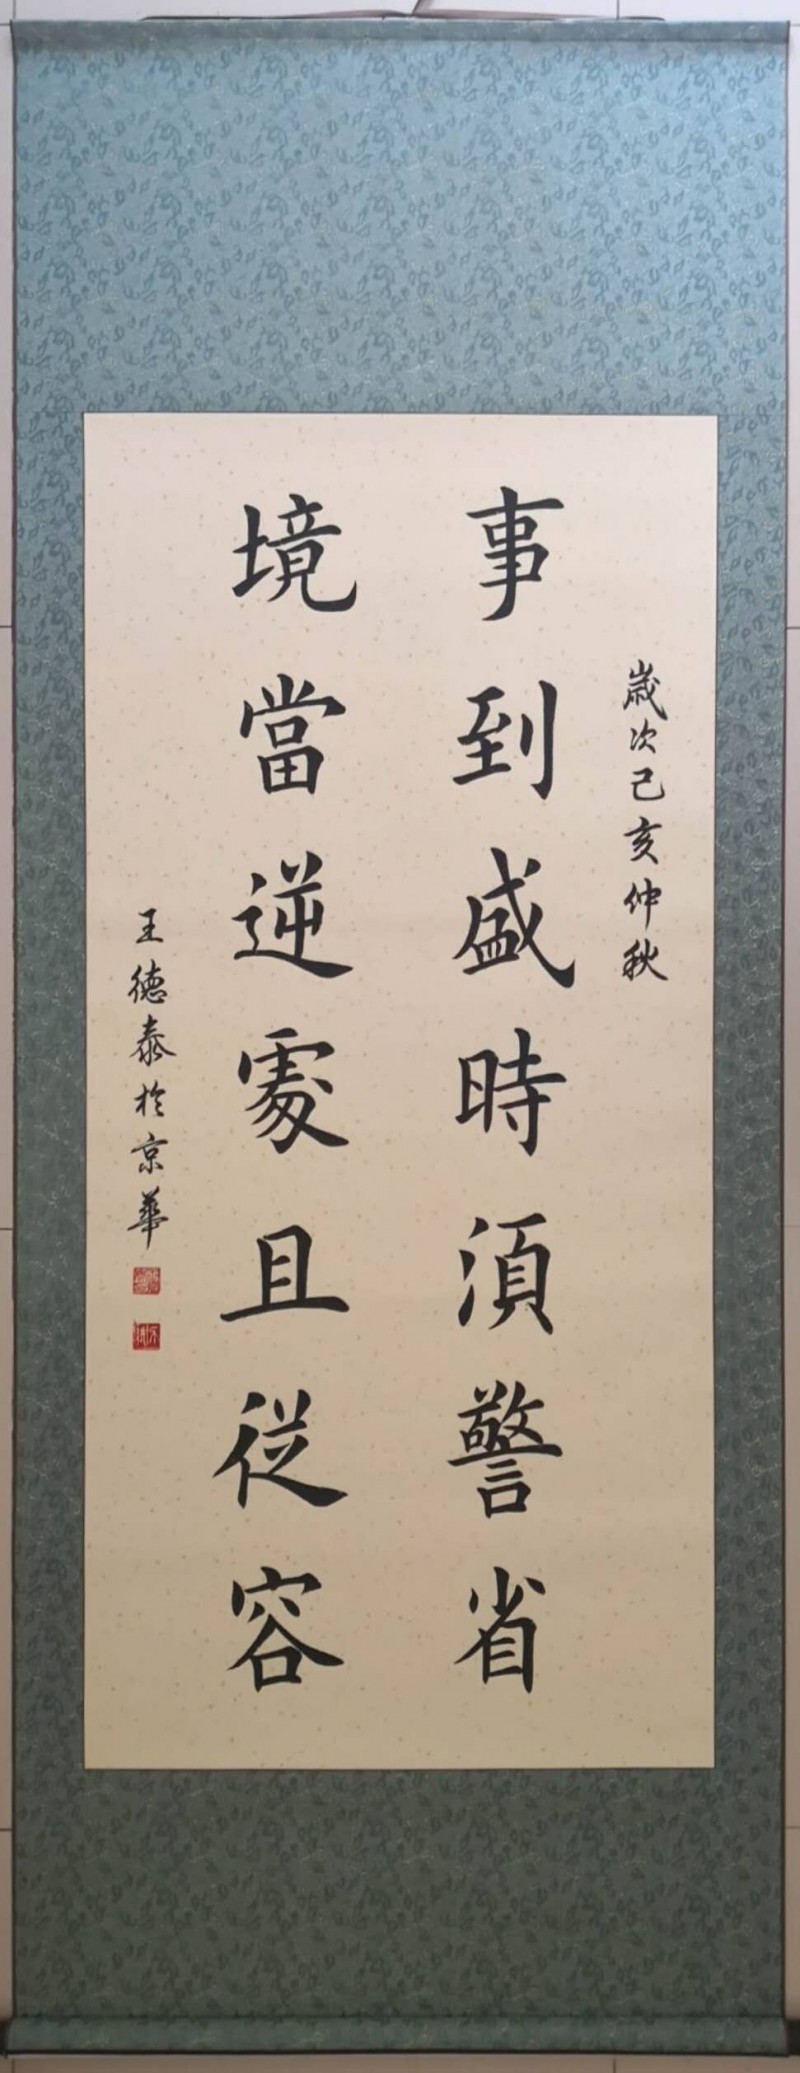 歲次己亥仲秋
事到盛時須警省
境當逆處且從容
王德泰於京華